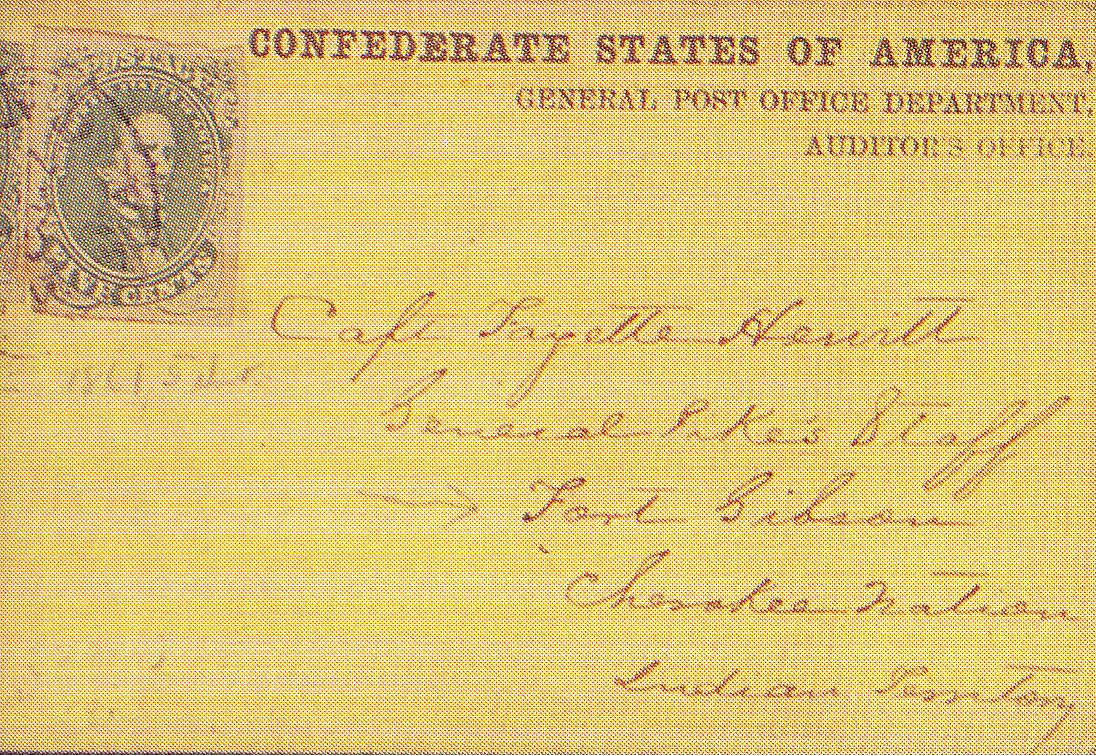 CONFEDERATE STATES OF AMERICA,
GENERAL POST OFFICE DEPARTMENT,
AUDITOR'S OFFICE.
POSTAGE
FIVE CENTS
Capt Fayette Hewitt
General Pike's Staff
Fort Gibson
Cherokee Nation
Indian Territory